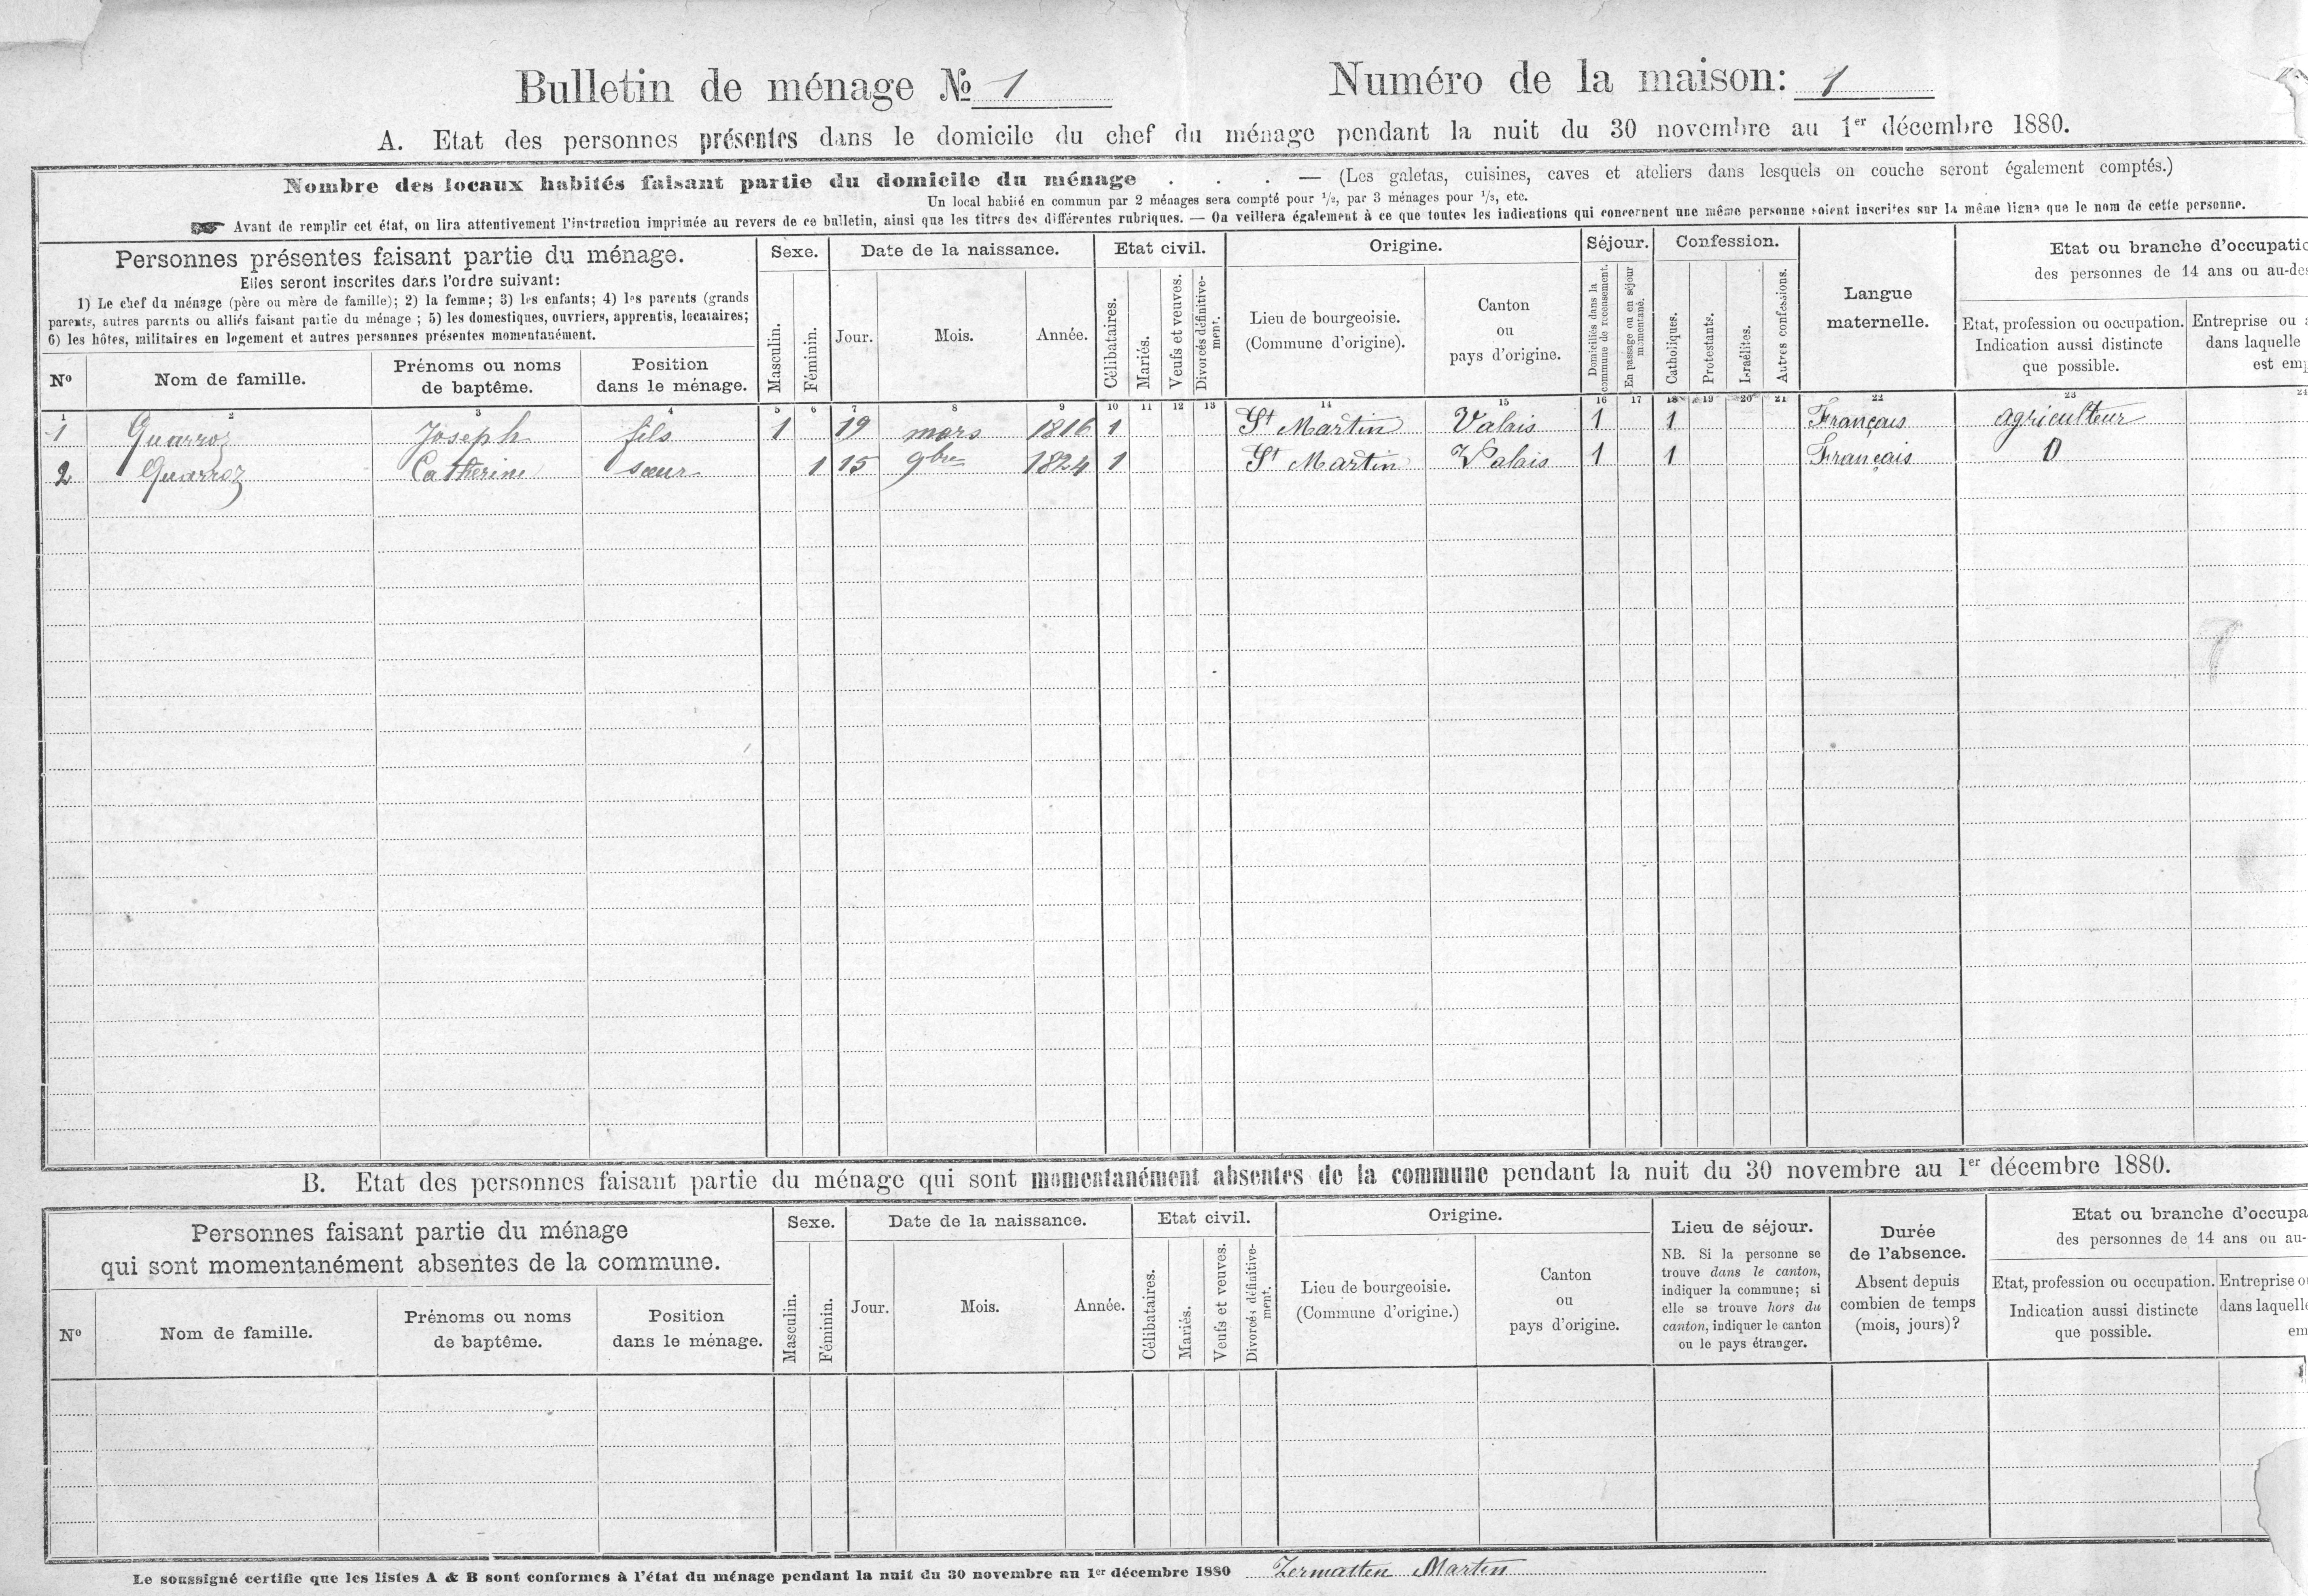 Bulletin de ménage № 1
Numéro de la maison: 1
A. Etat des personnes présentes dans le domicile du chef du ménage pendant la nuit du 30 novembre au 1er décembre 1880.
Nombre des locaux habités faisant partie du domicile du ménage . . . — (Les galetas, cuisines, caves et ateliers dans lesquels on couche seront également comptés.)
Un local habité en commun par 2 ménages sera compté pour 1/2, par 3 ménages pour 1/3, etc.
☞ Avant de remplir cet état, on lira attentivement l'instruction imprimée au revers de ce bulletin, ainsi que les titres des différentes rubriques. — On veillera également à ce que toutes les indications qui concernent une même personne soient inscrites sur la même ligne que le nom de cette personne.
Personnes présentes faisant partie du ménage.
Elles seront inscrites dans l'ordre suivant:
1) Le chef du ménage (père ou mère de famille); 2) la femme; 3) les enfants; 4) les parents (grands
parents, autres parents ou alliés faisant partie du ménage ; 5) les domestiques, ouvriers, apprentis, locataires;
6) les hôtes, militaires en logement et autres personnes présentes momentanément.
No
Nom de famille.
Prénoms ou noms
de baptême.
Position
dans le ménage.
Sexe.
Masculin.
Féminin.
Date de la naissance.
Jour.
Mois.
Année.
Etat civil.
Célibataires.
Mariés.
Veufs et veuves.
Divorcés définitive-
ment.
Origine.
Lieu de bourgeoisie.
(Commune d'origine).
Canton
ou
pays d'origine.
Séjour.
Domiciliés dans la
commune de recensement.
En passage ou en séjour
momentané.
Confession.
Catholiques.
Protestants.
Israélites.
Autres confessions.
Langue
maternelle.
Etat ou branche d'occupatio
des personnes de 14 ans ou au-des
Etat, profession ou occupation.
Indication aussi distincte
que possible.
Entreprise ou
dans laquelle
est emp
1 2 3 4 5 6 7 8 9 10 11 12 13 14 15 16 17 18 19 20 21 22 23 24
1 Quarroz Joseph fils 1 19 mars 1816 1 St Martin Valais 1 1 Français agriculteur
2 Quarroz Catherine sœur 1 15 9bre 1824 1 St Martin Valais 1 1 Français D
B. Etat des personnes faisant partie du ménage qui sont momentanément absentes de la commune pendant la nuit du 30 novembre au 1er décembre 1880.
Personnes faisant partie du ménage
qui sont momentanément absentes de la commune.
No
Nom de famille.
Prénoms ou noms
de baptême.
Position
dans le ménage.
Sexe.
Masculin.
Féminin.
Date de la naissance.
Jour.
Mois.
Année.
Etat civil.
Célibataires.
Mariés.
Veufs et veuves.
Divorcés définitive-
ment.
Origine.
Lieu de bourgeoisie.
(Commune d'origine.)
Canton
ou
pays d'origine.
Lieu de séjour.
NB. Si la personne se
trouve dans le canton,
indiquer la commune; si
elle se trouve hors du
canton, indiquer le canton
ou le pays étranger.
Durée
de l'absence.
Absent depuis
combien de temps
(mois, jours)?
Etat ou branche d'occupa
des personnes de 14 ans ou au-
Etat, profession ou occupation.
Indication aussi distincte
que possible.
Entreprise o
dans laquelle
em
Le soussigné certifie que les listes A & B sont conformes à l'état du ménage pendant la nuit du 30 novembre au 1er décembre 1880 Zermatten Martin